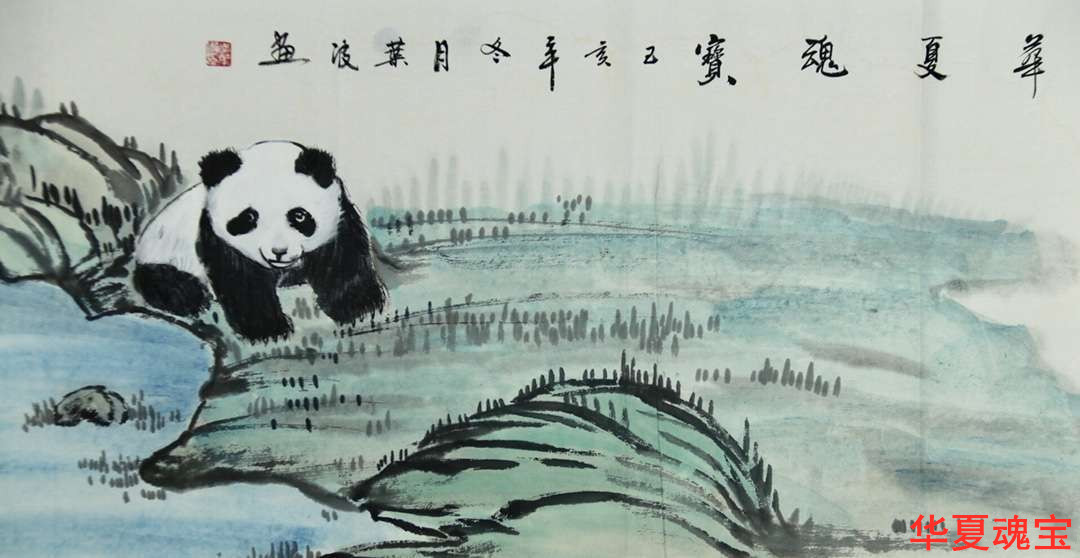 華夏魂寶己亥年冬月葉波畫
华夏魂宝